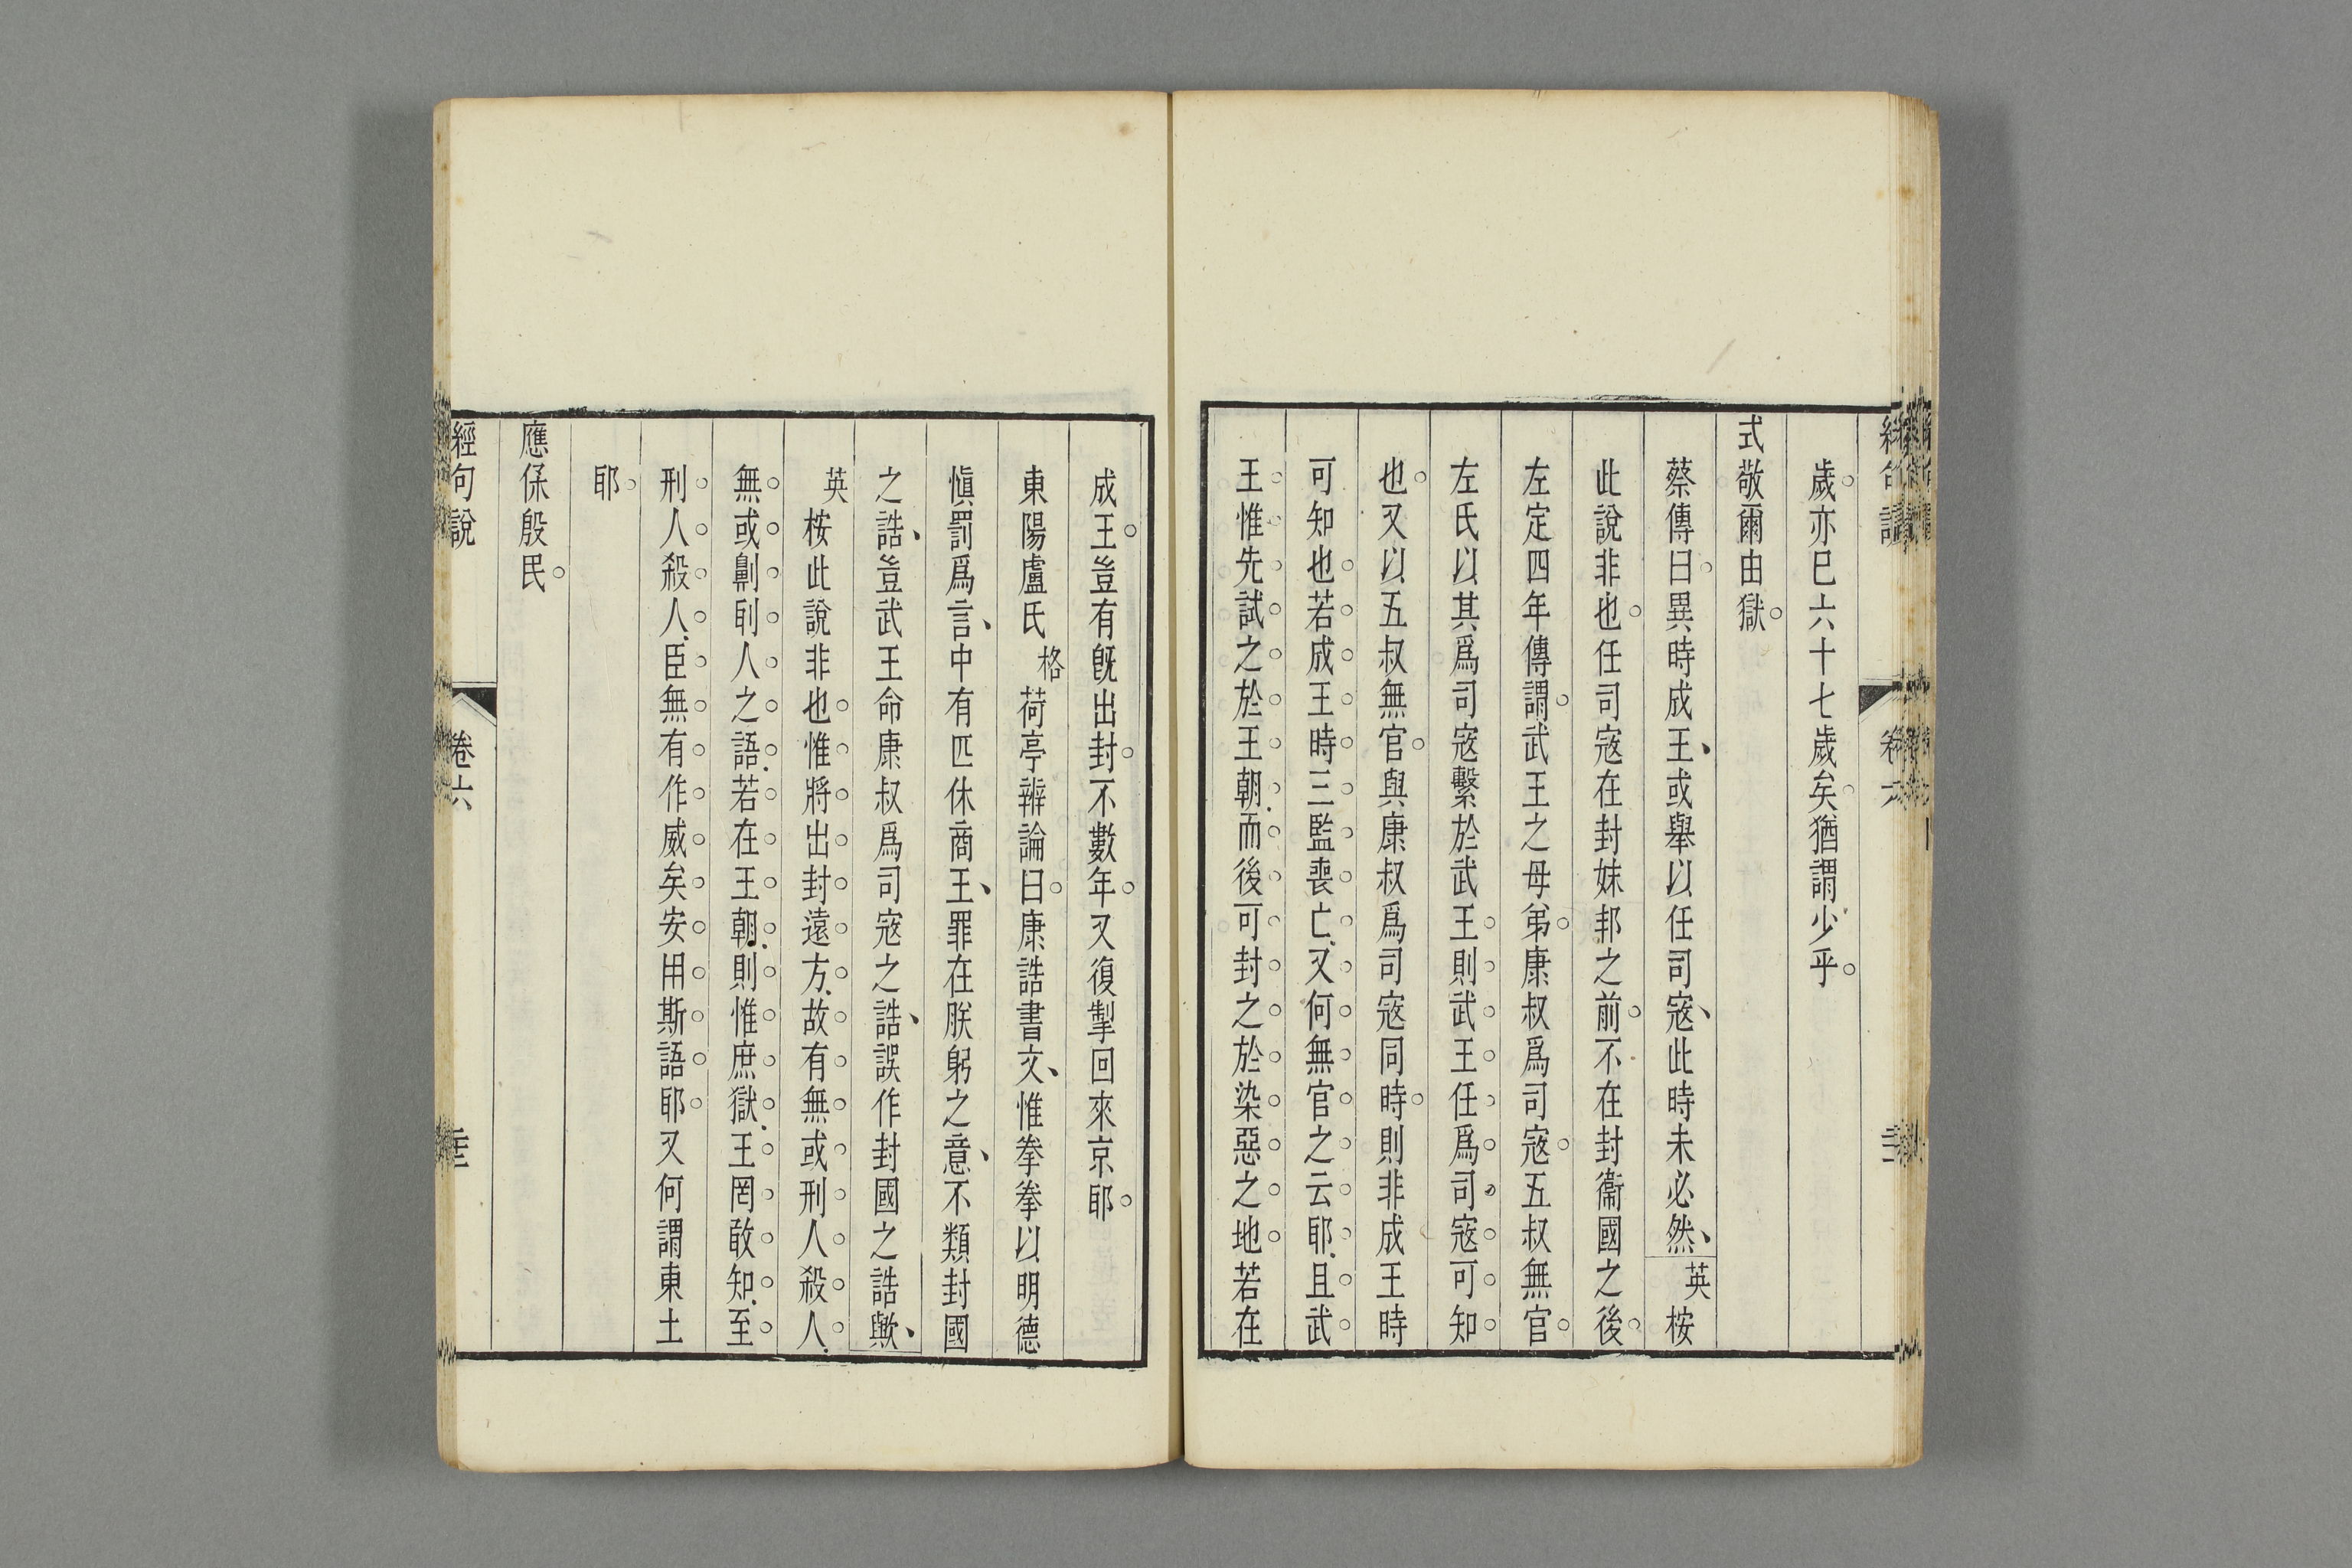 歲亦巳六十七歲矣猶謂少乎
式敬爾由獄
蔡傳曰異時成王或舉以任司寇此時未必然英桉
此說非也任司寇在封妹邦之前不在封衞國之後
左定四年傳謂武王之母弟康叔爲司寇五叔無官
左氏以其爲司寇繫於武王則武王任爲司寇可知
也又以五叔無官與康叔爲司寇同時則非成王時
可知也若成王時三監喪亡又何無官之云耶且武
王惟先試之於王朝而後可封之於染惡之地若在
成王豈有旣出封不數年又復掣回來京耶
東陽盧氏格荷亭辨論曰康誥書文惟拳拳以明德
愼罰爲言中有匹休商王罪在朕躬之意不類封國
之誥豈武王命康叔爲司寇之誥誤作封國之誥歟
英桉此說非也惟將出封遠方故有無或刑人殺人
無或劓刵人之語若在王朝則惟庶獄王罔敢知至
刑人殺人臣無有作威矣安用斯語耶又何謂東土
耶
應保殷民
經句說
卷六